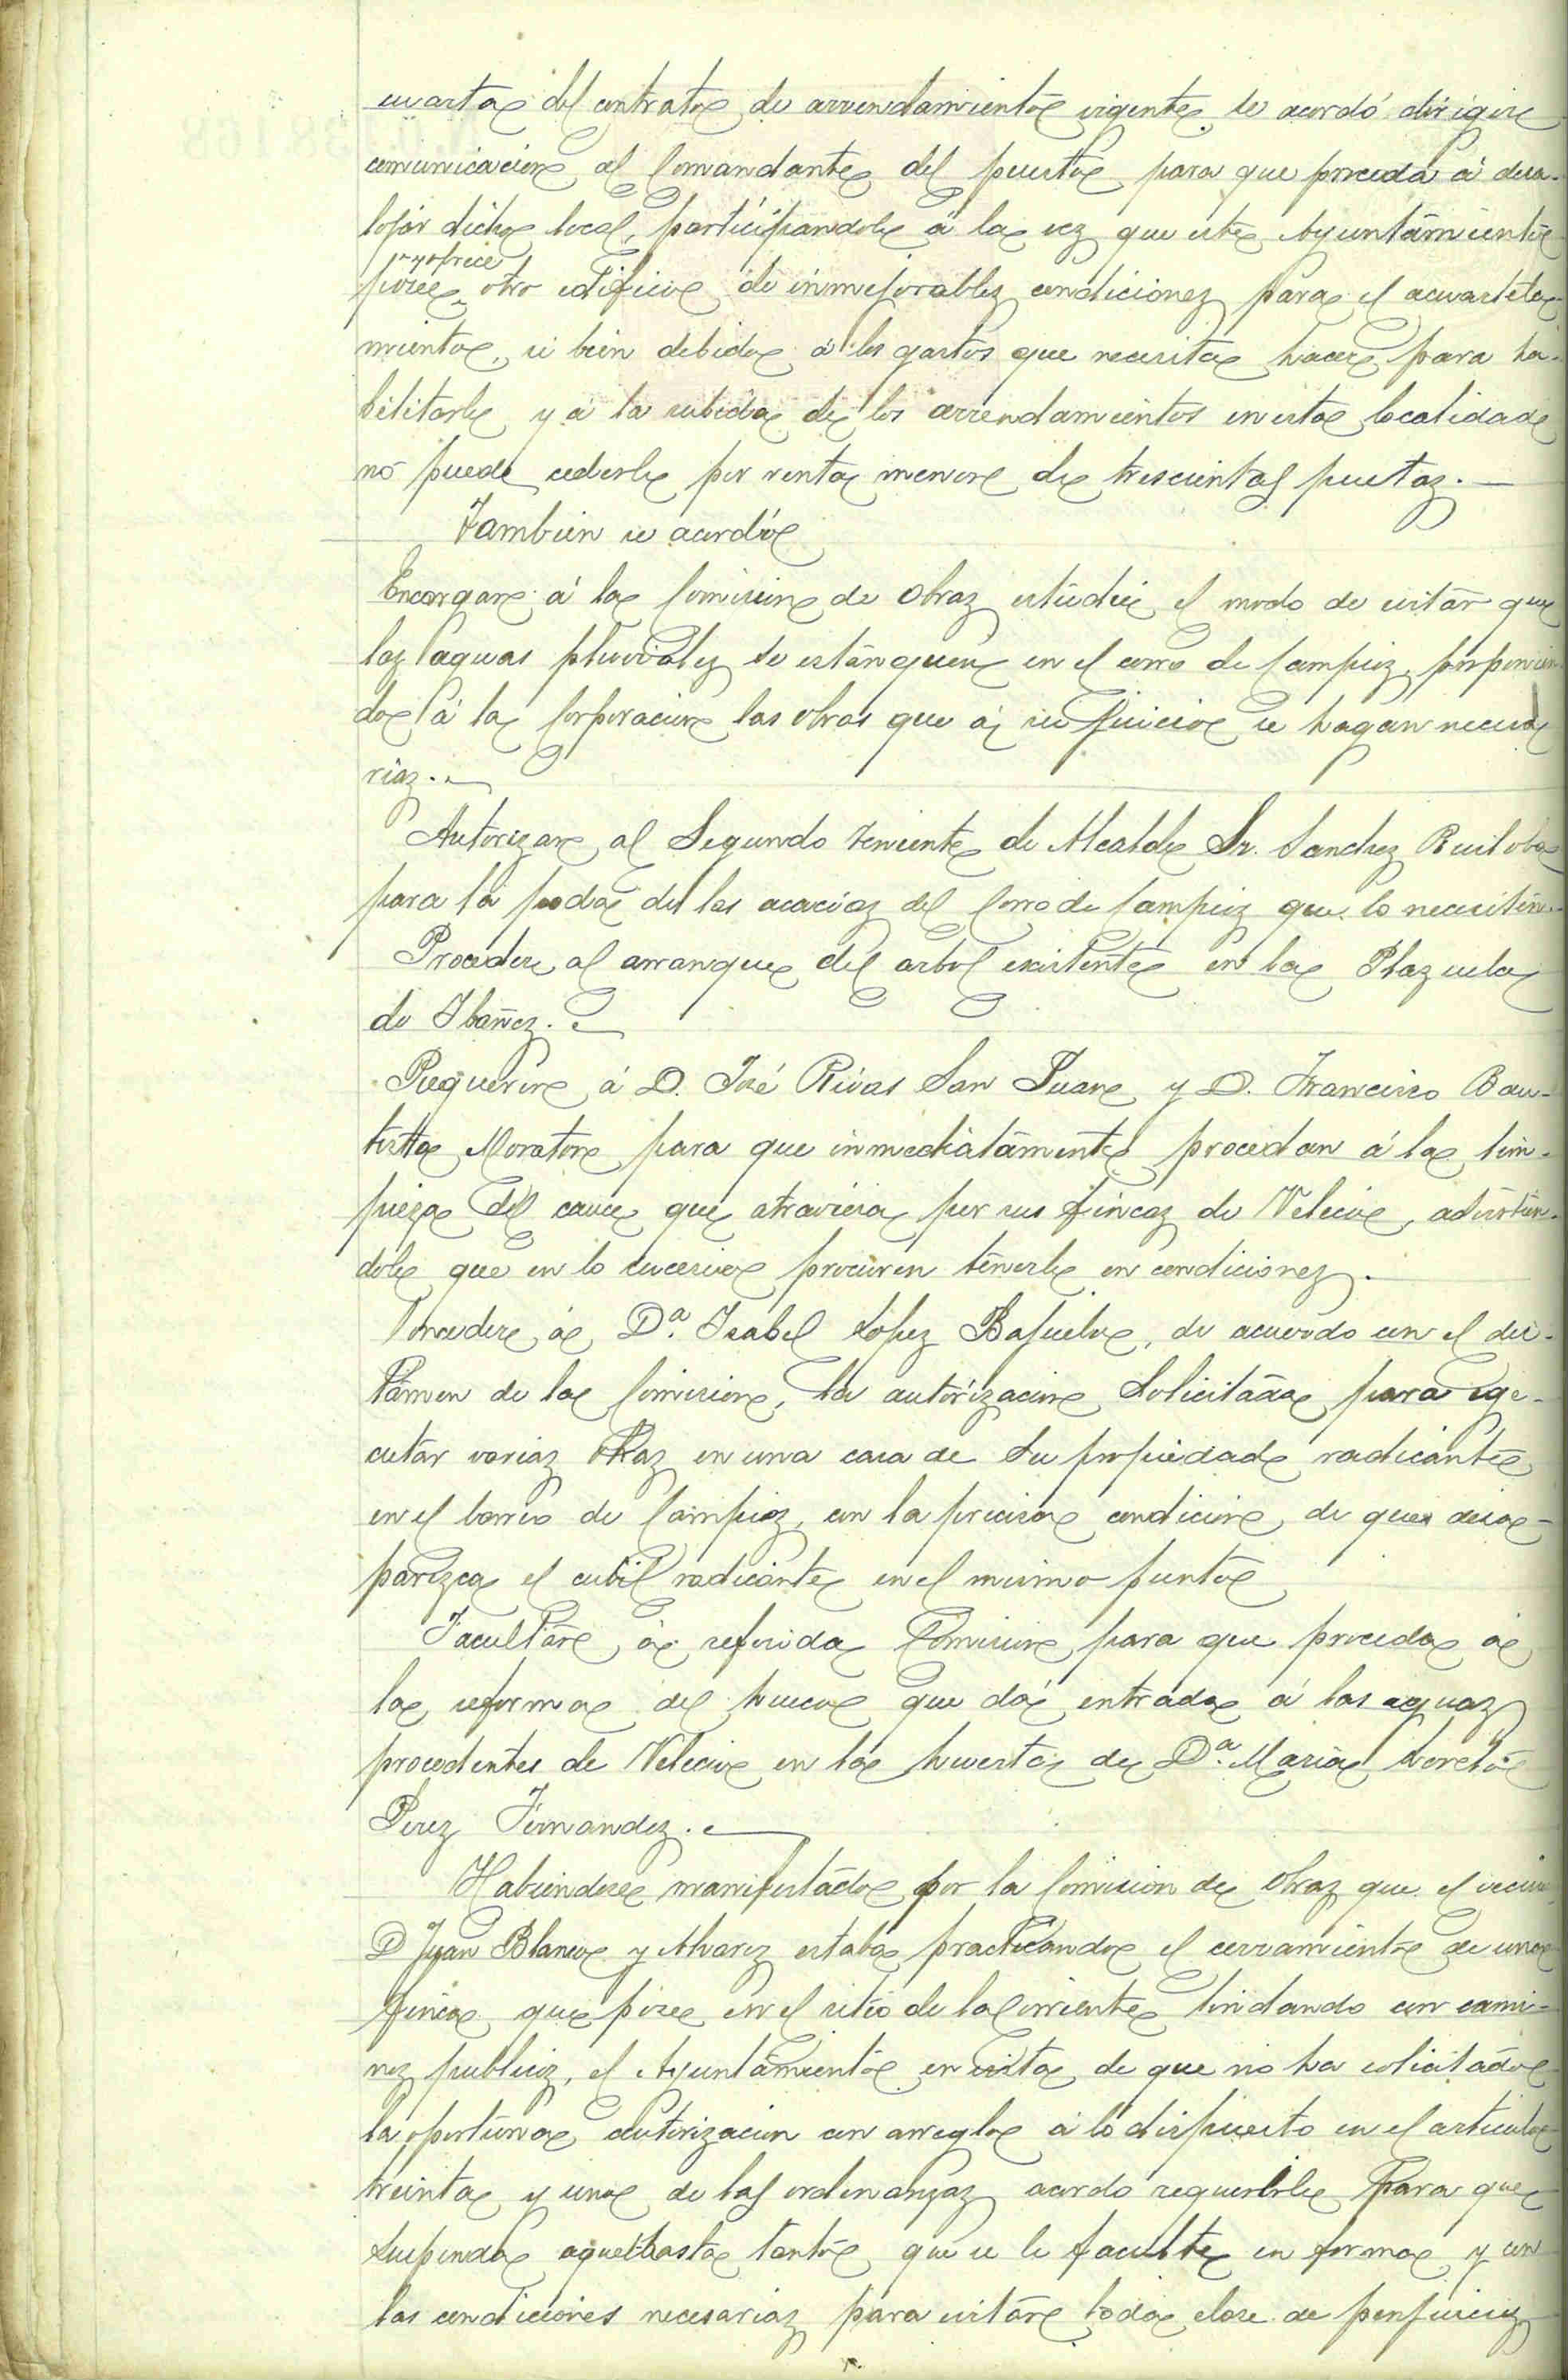 cuarta del contrato de arrendamiento vigente, se acordó dirigir
comunicacion al Comandante del puesto para que proceda á desa-
lojar dicho local, participandole á la vez que este Ayuntamiento
y ofrece
posee otro edificio de inmejorables condiciones para el acuartela-
miento, si bien debido á los gastos que necesita hacer para ha-
bilitarle y á la subida de los arrendamientos en esta localidad
no puede cederle por renta menor de trescientas pesetas.—
Tambien se acordó
Encargar á la Comision de Obras estudie el modo de evitar que
las aguas pluviales se estanquen en el corro de Campios, proponien
do á la Corporacion las obras que á su juicio se hagan necesa
rias.—
Autorizar al Segundo teniente de Alcalde Sr. Sanchez Ruiloba
para la poda de las acacias del Corro de Campios que lo necesiten.
Proceder al arranque del arbol existente en la Plazuela
de Ibañez.—
Requerir á D. José Rivas San Juan y D. Francisco Bau-
tista Moraton para que inmediatamente procedan á la lim-
pieza del cauce que atraviesa por sus fincas de Velecio, advirtien-
dole que en lo sucesivo procuren tenerle en condiciones.
Conceder á D.ª Isabel Lopez Bapuelo, de acuerdo con el dic-
támen de la Comision, la autorizacion solicitada para eje-
cutar varias obras en una casa de su propiedad radicante
en el barrio de Campios, con la precisa condicion de que desa-
parezca el cubil radicante en el mismo punto
Facultar á referida Comision para que proceda á
la reforma del hueco que dá entrada á las aguas
procedentes de Velecio en la huerta de D.ª Maria Loreto
Perez Fernandez.—
Habiendose manifestado por la Comision de Obras que el vecino
D Juan Blanco y Alvarez estaba practicando el cerramiento de una
finca que posee en el sitio de la Corriente lindando con cami-
nos publicos, el Ayuntamiento en vista de que no ha solicitado
la oportuna autorizacion con arreglo á lo dispuesto en el articulo
treinta y uno de las ordenanzas acordo requerirle para que
suspenda aquel hasta tanto que se le faculte en forma y con
las condiciones necesarias para evitar toda clase de perjuicios